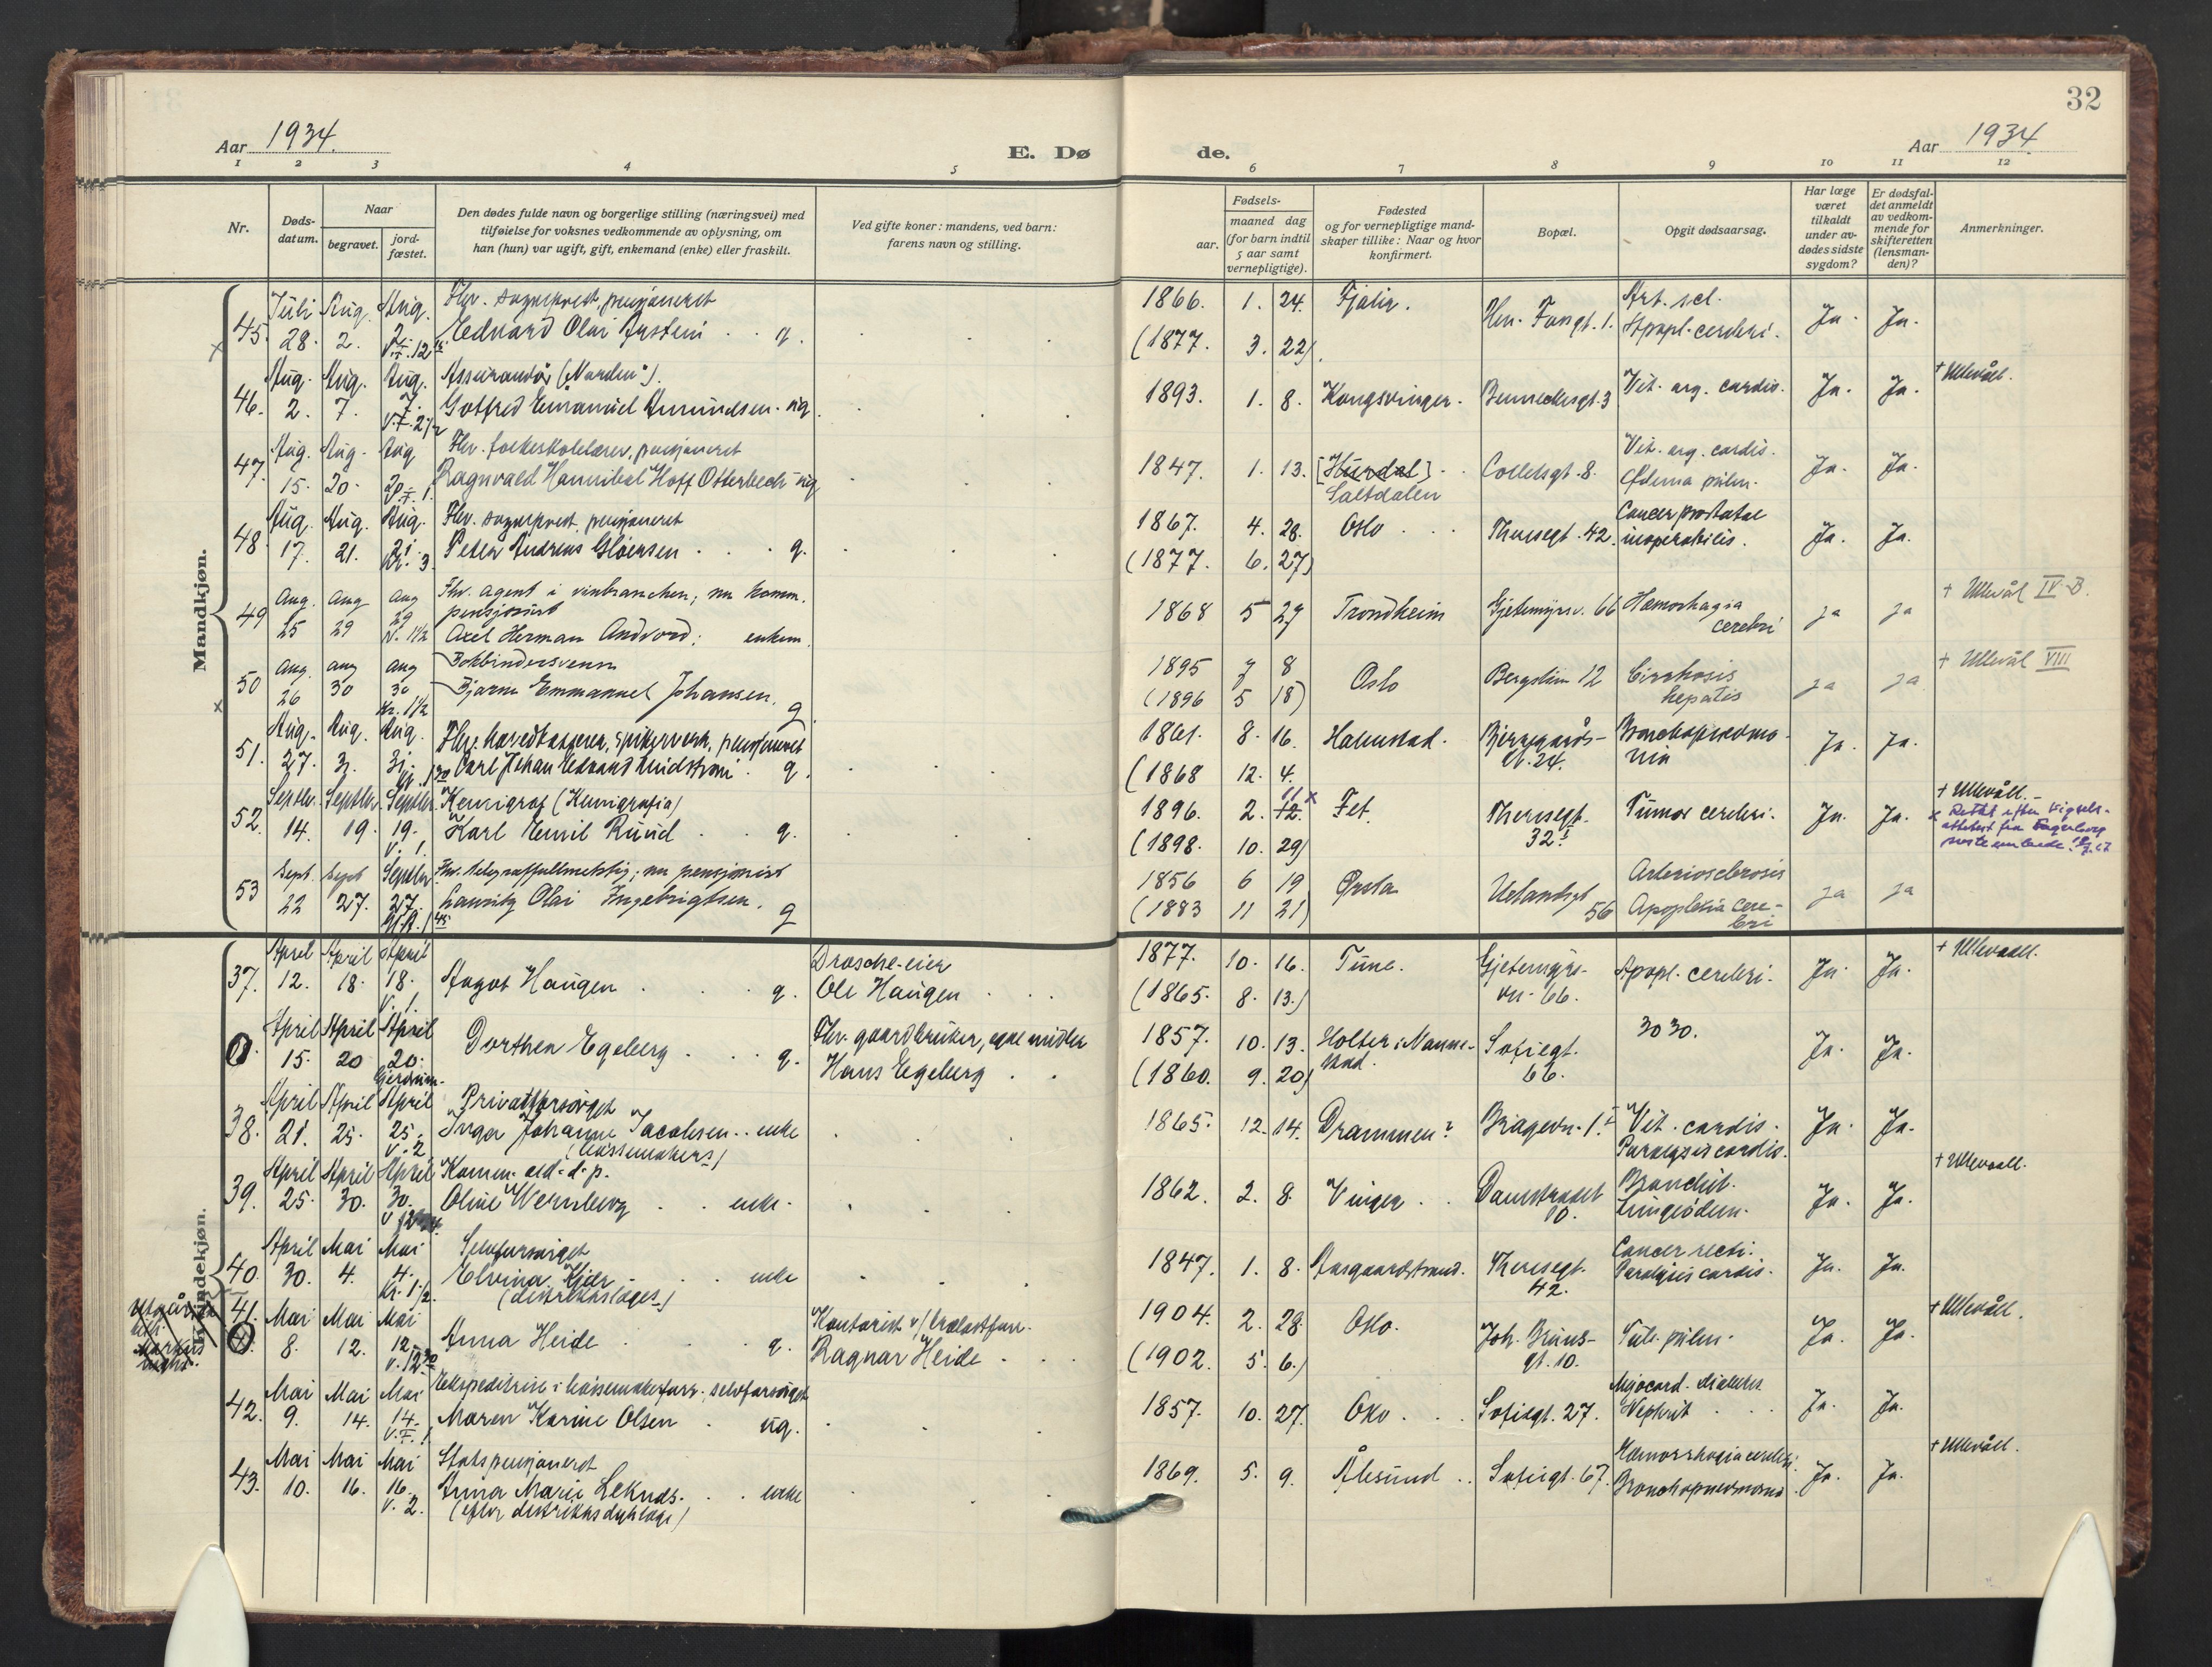 32
Aar 1934.
E. Dø
de.
Aar 1934
1 2 3 4 5 6 7 8 9 10 11 12
Nr.
Døds-
datum.
Naar
begravet.
jord-
fæstet.
Den dødes fulde navn og borgerlige stilling (næringsvei) med
tilføielse for voksnes vedkommende av oplysning, om
han (hun) var ugift, gift, enkemand (enke) eller fraskilt.
Ved gifte koner: mandens, ved barn:
farens navn og stilling.
Fødsels-
aar.
maaned dag
(for barn indtil
5 aar samt
vernepligtige).
Fødested
og for vernepligtige mand-
skaper tillike: Naar og hvor
konfirmert.
Bopæl.
Opgit dødsaarsag.
Har læge
været
tilkaldt
under av-
dødes sidste
sygdom?
Er dødsfal-
det anmeldt
av vedkom-
mende for
skifteretten
(lensman-
den)?
Anmerkninger.
Mandkjøn.
45. Juli 28. Aug. 2. Aug. 2.
Fhv. sogneprest, pensjoneret
Edvard Olai Justesi g.
1866. 1. 24. Fjaler.
(1877. 3. 22).
Art. scl.
Apopl. cerebri. Ja. Ja.
46. Aug. 2. Aug. 7. Aug. 7.
Assurandør ("Norden").
Gotfred Emanuel Amundsen ug.
1893. 1. 8. Kongsvinger. Bennechesgt. 3 Vit. org. cordis. Ja. Ja. + Ullevål.
47. Aug. 15. Aug. 20. Aug. 20.
Fhv. folkeskolelærer, pensjoneret
Ragnvald Hannibal Hoff Otterbech ug
1847. 1. 13. [Hurdal] Saltdalen Colletsgt. 8. Vit. org. cordis.
Ødema pulm. Ja. Ja.
48. Aug. 17. Aug. 21. Aug. 21. Kr. 3
Fhv. sogneprest, pensjoneret
Peter Andreas Gløersen g.
1867. 4. 28. Oslo Theresegt. 42. Cancer prostatae
inoperabilis. Ja. Ja.
(1877. 6. 27)
49 Aug. 25 aug 29 aug 29
Fhv. agent i vinbranchen; nu komm.
pensjonist
Axel Herman Andvord; enkem.
1868 5 29 Trondheim Gjetemyrsv. 66 Hæmorhagia
cerebri ja ja + Ullevål IV B.
50 aug. 26 aug 30 aug 30 Kr. 1½
Bokbindersvenn
Bjarne Emmanuel Johansen. g.
1895 7 8 Oslo Bergslien 12 Cirrhosis
hepatis ja ja + Ullevål VIII
(1896 5 18)
51. Aug. 27. Aug. 31. Aug. 31.
Fhv. hovedkasserer, spikerverk, pensjoneret
Carl Johan Edvard Lindstrøm g.
1861. 8. 16. Halmstad. Bjerregårds-
gt. 24. Bronchopneumo-
nia Ja. Ja.
(1868 12. 4.
52. Septbr. 14. Septbr. 19. Septbr. 19. V. 1.
Kemigraf (Kemigrafia)
Karl Emil Ruud g.
1896. 2. 12. 11 x Fet. Theresegt.
32 I Tumor cerebri. Ja. Ja. + Ullevåll.
x Rettet efter vigsels-
attest fra Fagerborg
(1898. 10. 29)
53 Sept. 22 Sept 27. Septbr 27.
Fhv. telegraffullmektig; nu pensjonist
Lauritz Olai Ingebrigtsen. g
1856 6 19 Ørsta Uelandsgt
56 Arteriosclerosis
Apoplexia cere-
bri ja ja
(1883 11 21)
Kvindekjøn.
37. April 12. April 18. April 18. V. 1.
Aagot Haugen g.
Drosche-eier
Ole Haugen
1877. 10. 16. Tune. Gjetemyrs-
vn. 66. Apopl. cerebri. Ja. Ja. + Ullevaall.
(1865. 8. 13.)
0. April 15. April 20 April 20. Gjerdrum.
Dorthea Egeberg g.
Fhv. gaardbruker, egne midler
Hans Egeberg
1857. 10. 13. Holter i Nanne-
stad. Sofiegt.
66. 3030. Ja. Ja.
(1860. 9. 20)
38. April 21. April 25. April 25. V. 2
Privatforsørget
Inga Johanne Jacobsen enke
1865. 12. 14. Drammen? Bragevn. 1. I Vit. cordis.
Paralysis cordis. Ja. Ja.
39. April 25. April 30. April 30.
Komm. ald. d. p.
Oline Wernberg enke.
1862. 2. 8. Vinger Damstredet
10. Bronchit.
Lungeødem. Ja. Ja. + Ullevaall.
40. April 30. Mai 4. Mai 4. Kr. 1½.
Selvforsørget
Elvina Kjær enke
(distriktslæges)
1847. 1. 8. Aasgaardstrand. Theresegt.
42. Cancer recti.
Paralysis cordis. Ja. Ja.
41. Mai 8. Mai 12. Mai 12.
Anna Heide g.
Ragnar Heide
1904. 2. 28. Oslo. Joh. Bruns-
gt. 10. Tub. pulm. Ja. Ja. + Ullevåll.
(1902. 5. 6.)
42. Mai 9. Mai 14. Mai 14.
Ekspeditrise i bøssemakerforr. selvforsørget
Maren Karine Olsen ug.
1857. 10. 27. Oslo. Sofiegt. 27. Myocard. diabetes
Nephrit Ja. Ja.
43. Mai 10. Mai 16. Mai 16. V. 2.
Statspensjoneret
Anna Marie Leknes enke
(efter distriktsdyrlæge)
1869. 5. 9. Ålesund Sofiegt. 67. Hæmorrhagia cerebri.
Bronchopneumoni Ja. Ja. + Ullevåll.